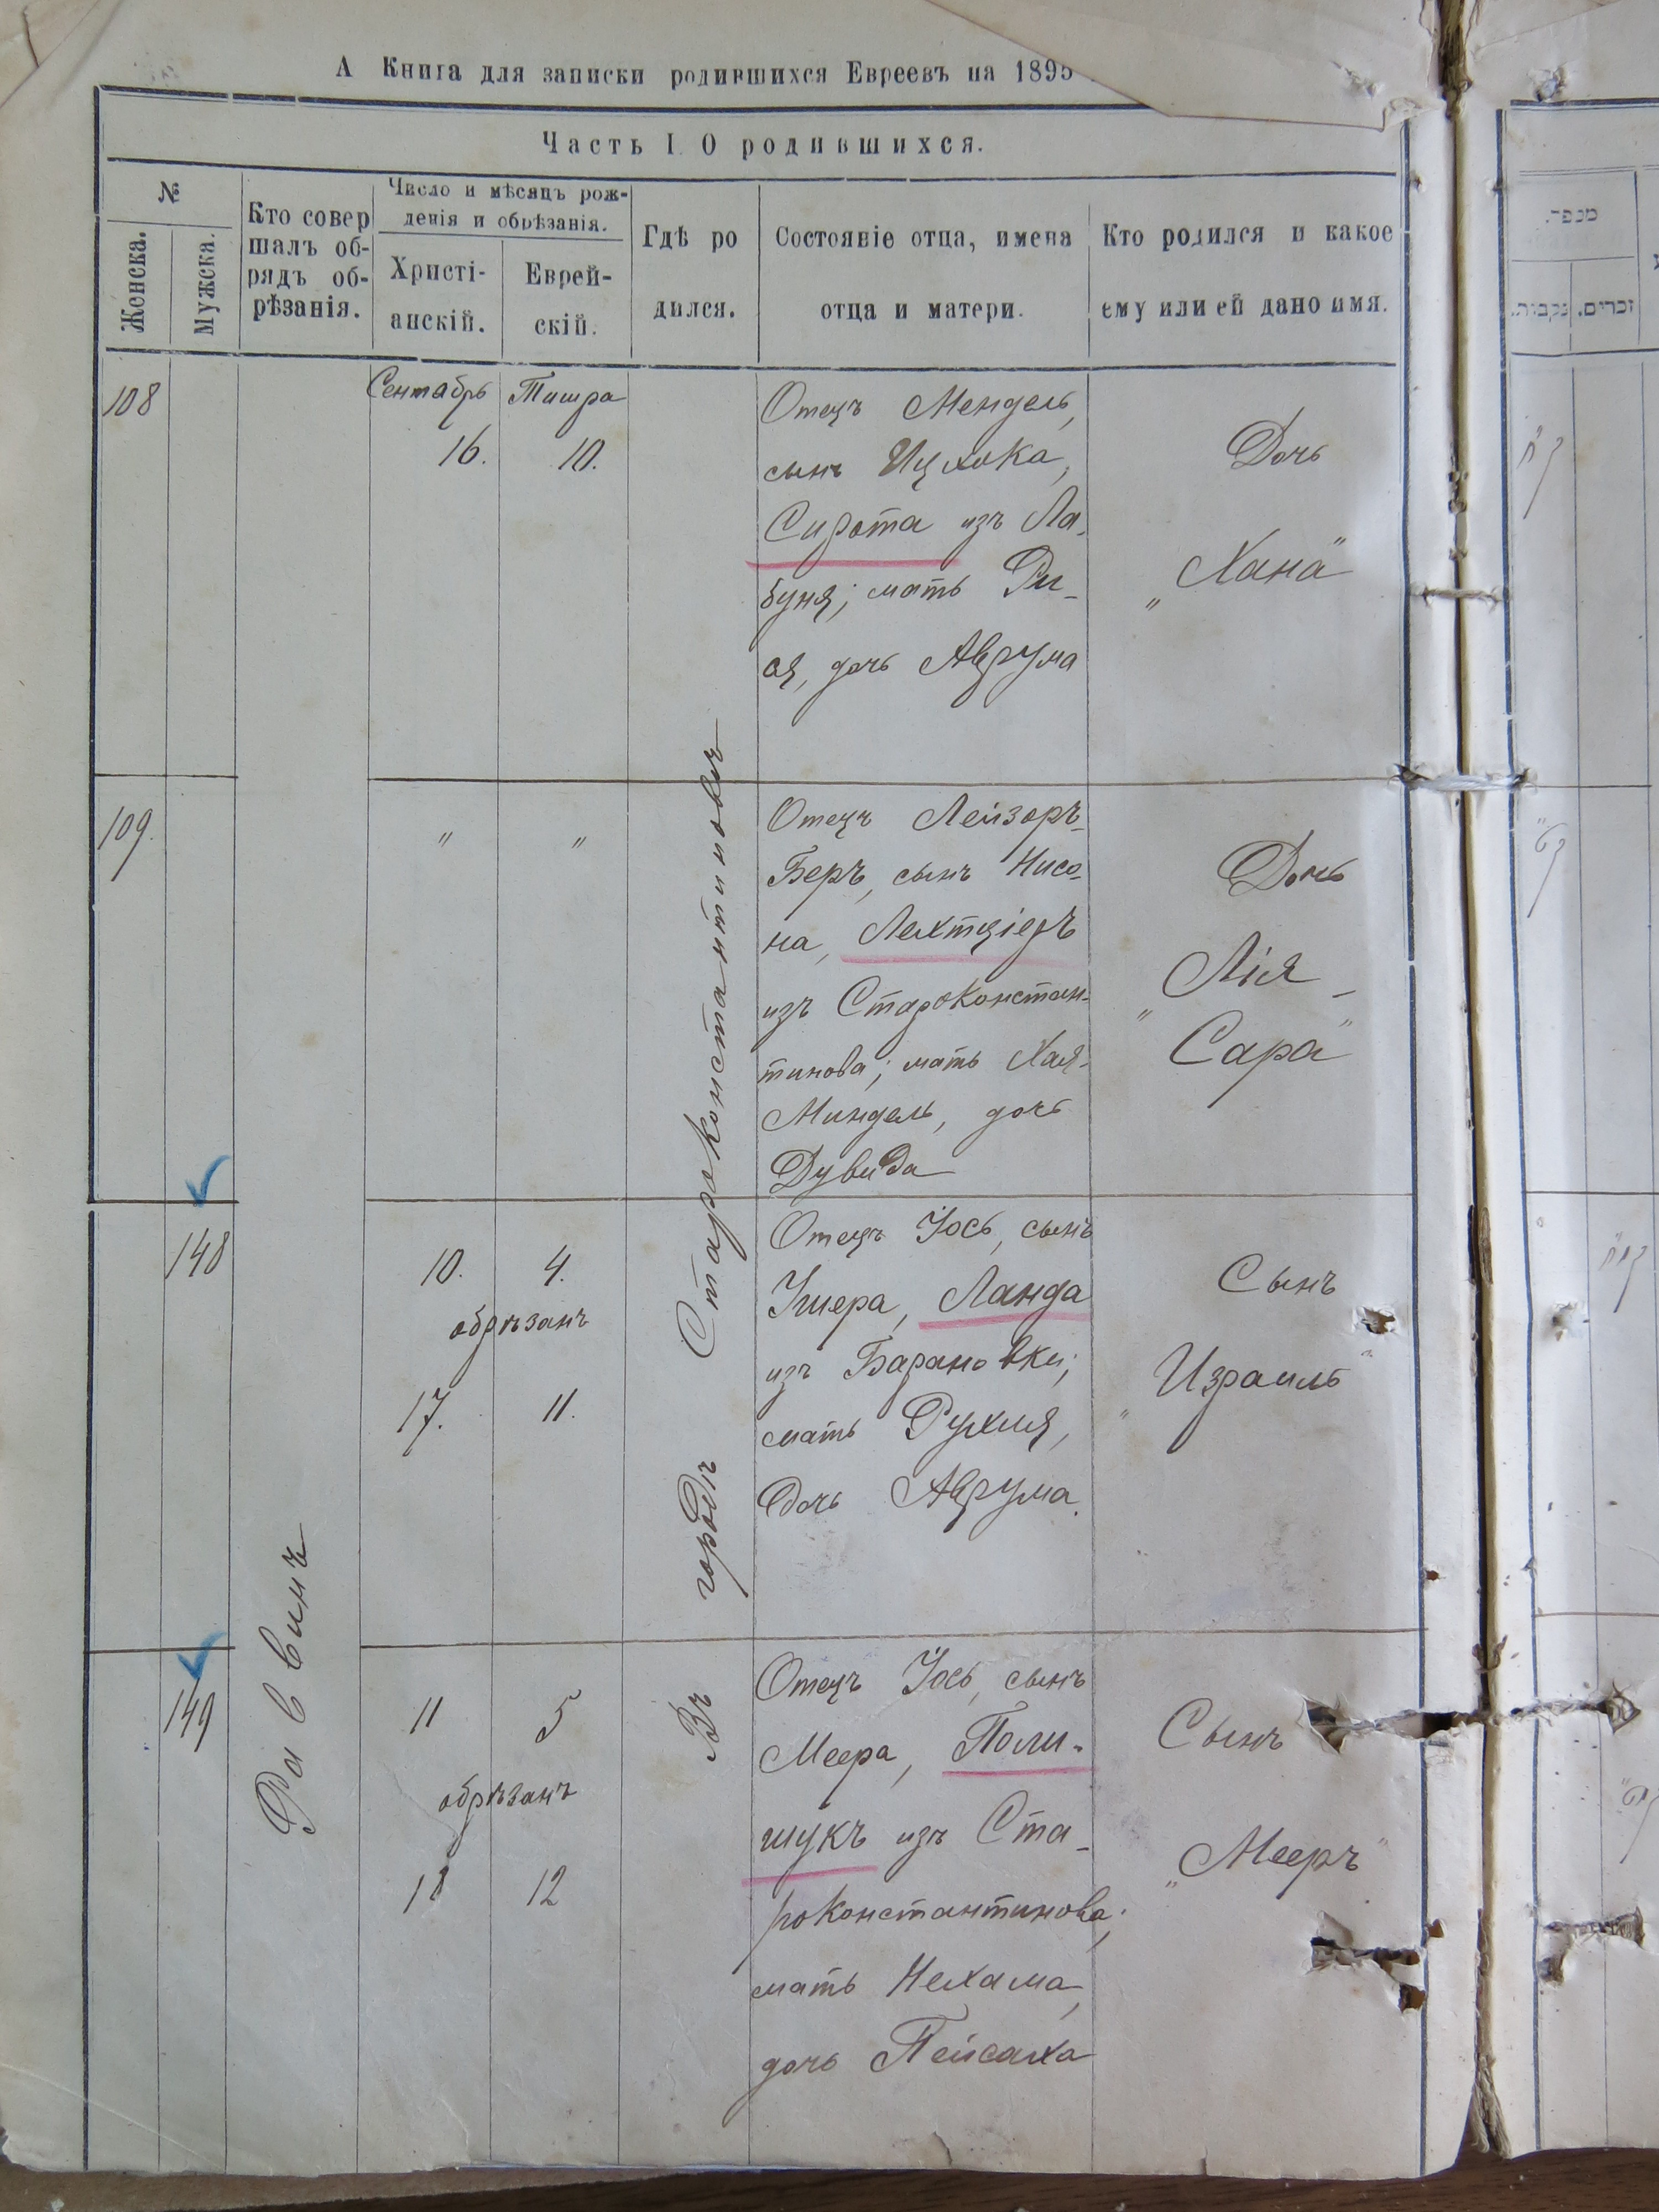 А Книга для записки родившихся Евреевъ на 1895
Часть I. О родившихся.
№
Женска.
Мужска.
Кто совер
шалъ об-
рядъ об-
рѣзанія.
Число и мѣсяцъ рож-
денія и обрѣзанія.
Христі-
анскій.
Еврей-
скій.
Гдѣ ро
дился.
Состояніе отца, имена
отца и матери.
Кто родился и какое
ему или ей дано имя.
מספר.
נקבות.
זכרים.
108
Сентабрь
16.
Тишра
10.
Отецъ Мендель,
сынъ Ицхока,
Сирота изъ Ла-
буня; мать Ри-
ся, дочь Аврума
Дочь
„Хана"
109.
"
"
Отецъ Лейзоръ-
Беръ, сынъ Нисо-
на, Лехтціеръ
изъ Староконстан-
тинова; мать Хая-
Миндель, дочь
Дувида
Дочь
„Лія-
Сара"
148
10. 4.
обрѣзанъ
17. 11.
Отецъ Іось, сынъ
Ушера, Ланда
изъ Барановки;
мать Рухля,
дочь Аврума.
Сынъ
„Израиль"
149
11 5
обрѣзанъ
18 12
Отецъ Іось, сынъ
Меера, Поли-
щукъ изъ Ста-
роконстантинова;
мать Нехама,
дочь Пейсаха
Сынъ
„Мееръ"
Раввинъ
Въ городѣ Староконстантиновѣ